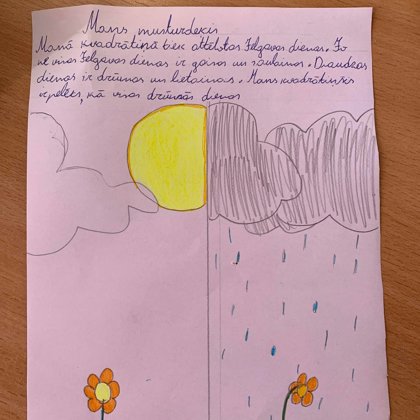 Mans musturdekis
Manā kvadrātiņā tiek attēlotas Jelgavas dienas. Jo
ne visas Jelgavas dienas ir gaišas un saulainas. Daudzas
dienas ir drūmas un lietainas. Mans kvadrātiņš
ir pelēks, kā visas drūmās dienas